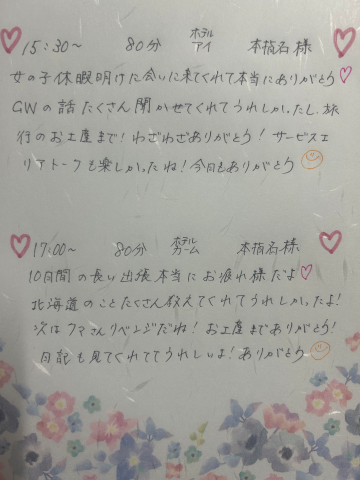 15:30~ 80分 ホテル アイ 本指名様
女の子休暇明けに会いに来てくれて本当にありがとう♡
GWの話たくさん聞かせてくれてうれしかったし、旅
行のお土産まで!わざわざありがとう!サービスエ
リアトークも楽しかったね!今日もありがとう
17:00~ 80分 ホテル カーム 本指名様
10日間の長い出張本当にお疲れ様だよ♡
北海道のことたくさん教えてくれてうれしかったよ!
次はクマさんリベンジだね!お土産までありがとう!
日記も見てくれててうれしいよ!ありがとう